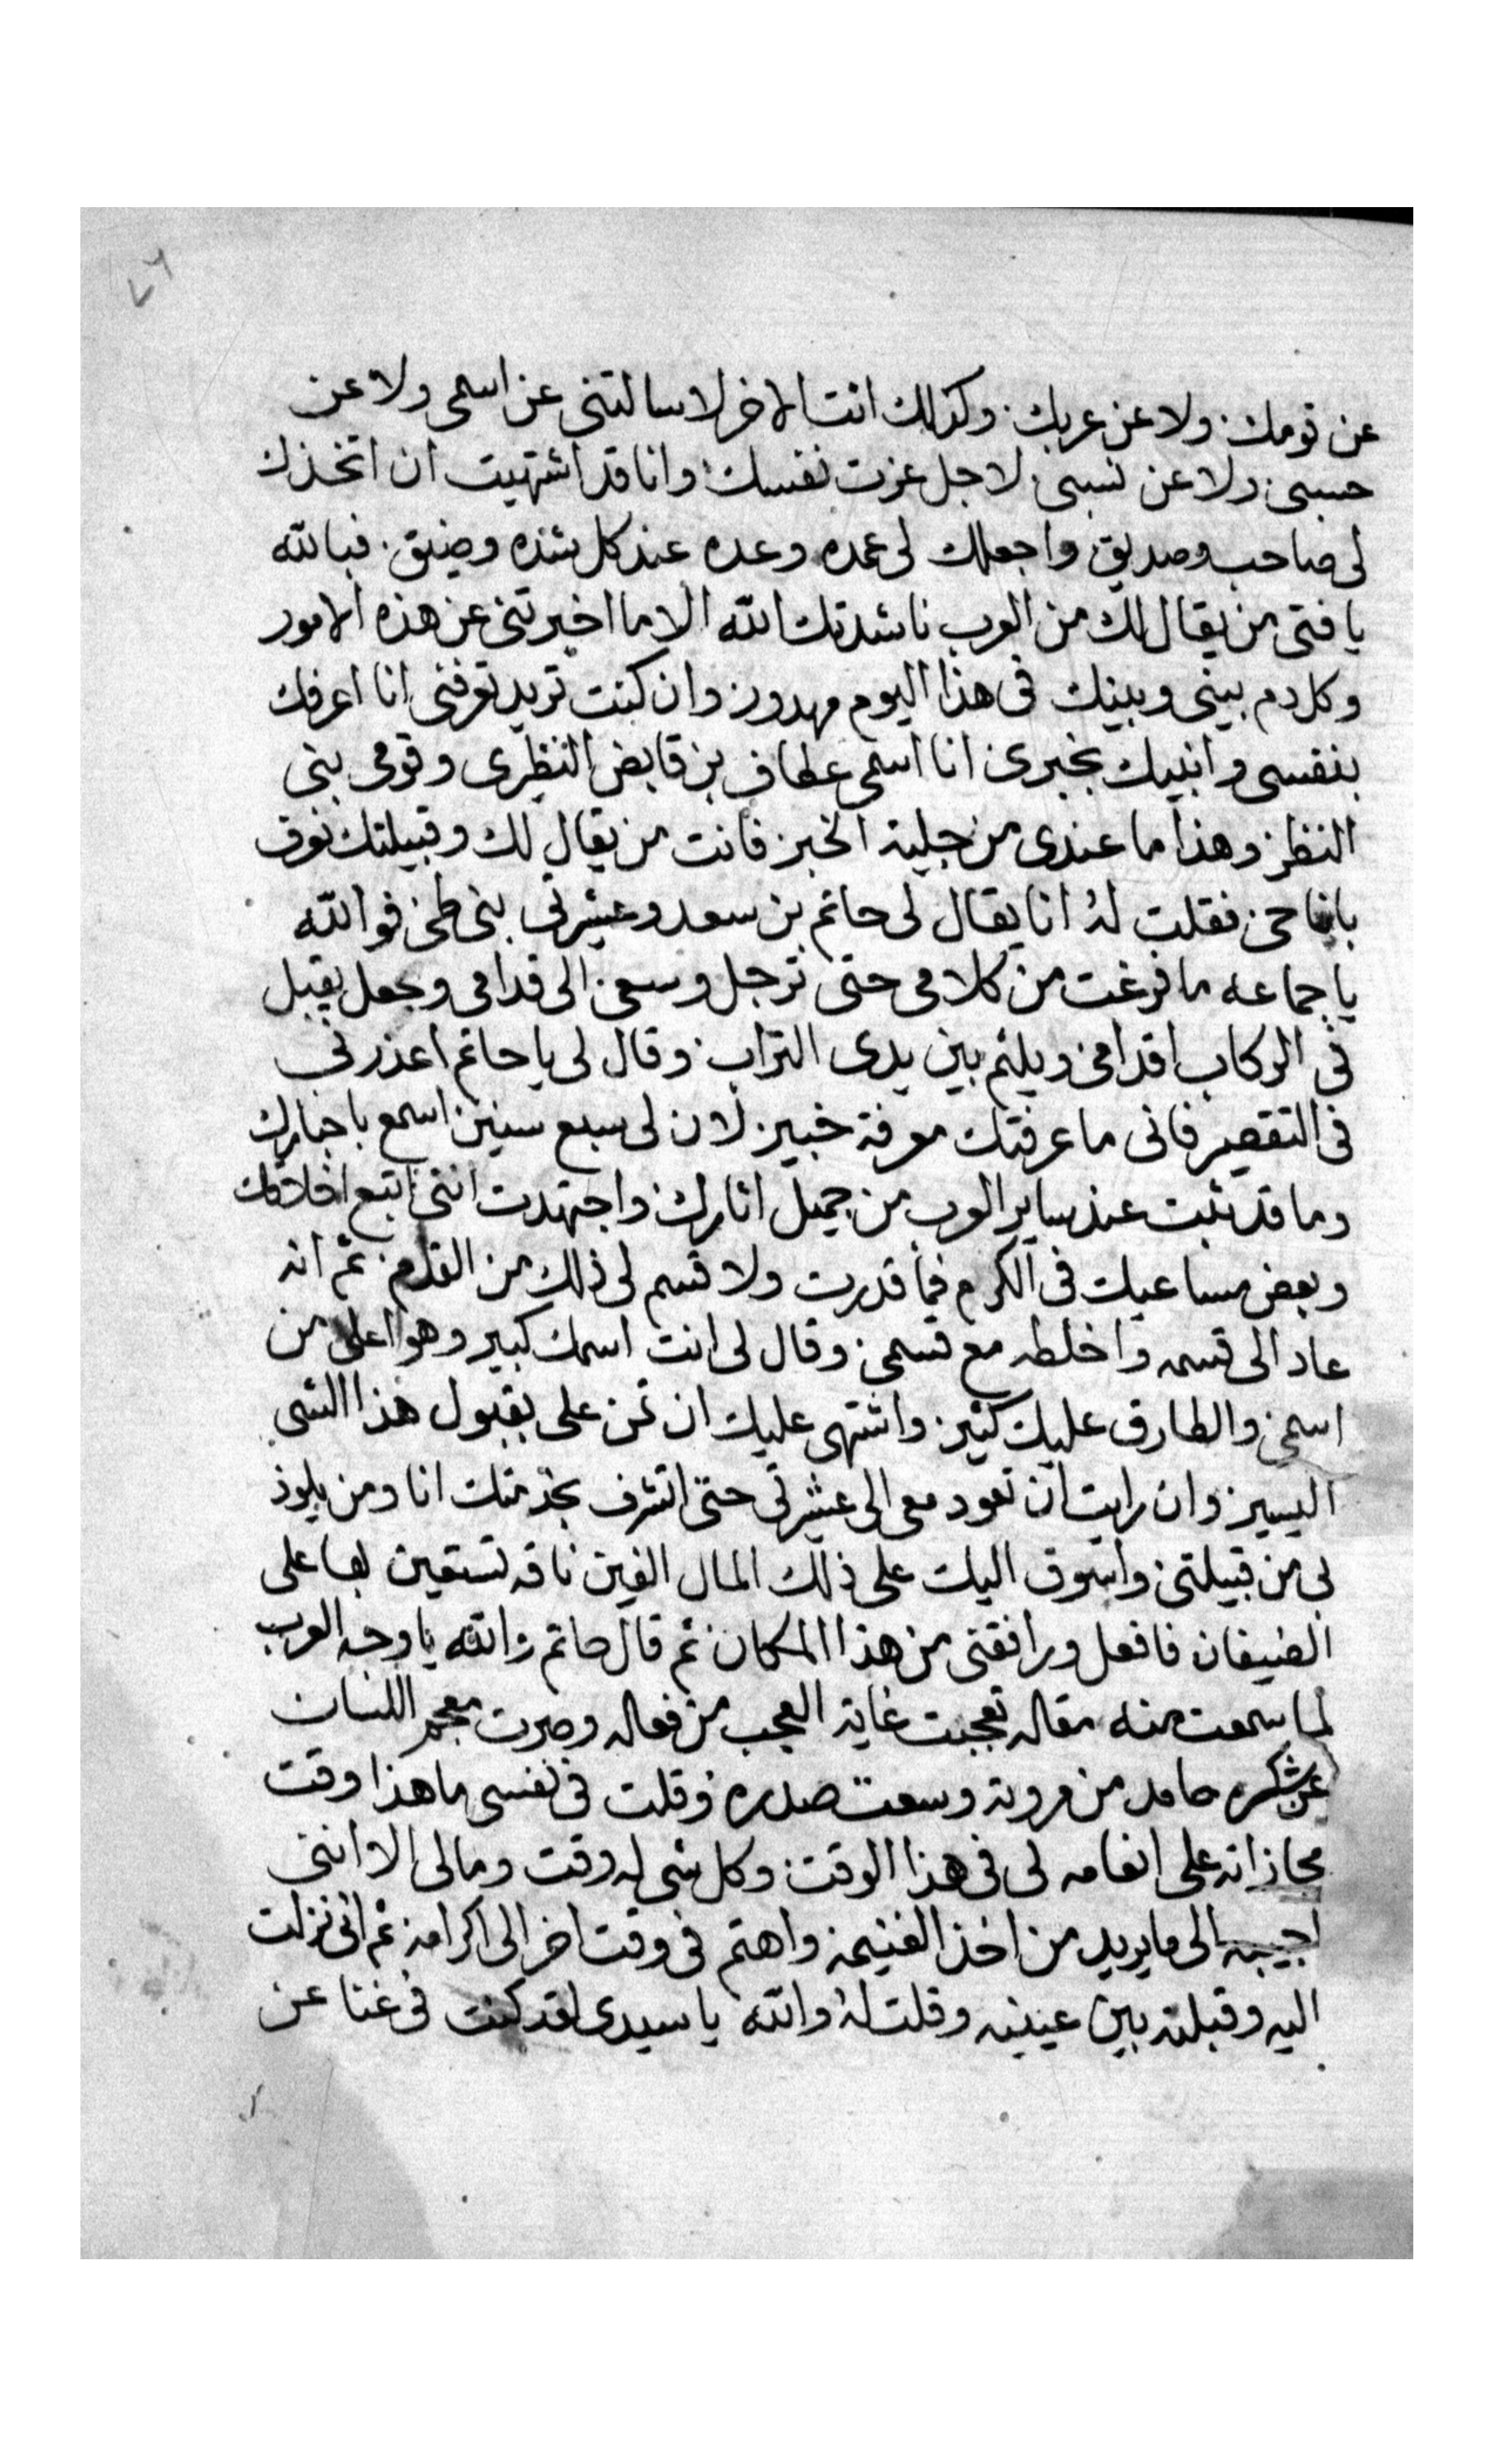 ٧٦
عن قومك ولا عن عربك وكذلك انت الاخر لا سالتنى عن اسمى ولا عن
حسبى ولا عن نسبى لاجل عزت نفسك وانا قد اشتهيت ان اتخذك
لى صاحب وصديق واجعلك لى عمده وعده عند كل شده وضيق فبالله
يا فتى من يقال لك من العرب ناشدتك الله الا ما اخبرتنى عن هذه الامور
وكل دم بينى وبينك فى هذا اليوم مهدور وان كنت تريد تعرفنى انا اعرفك
بنفسى وانبيك بخبرى انا اسمى عطاف بن قابض النظرى وقومى بنى
النظر وهذا ما عندى من جلية الخبر فانت من يقال لك وقبيلتك تعرف
باى حى فقلت له انا يقال لى حاتم بن سعد وعشيرتى بنى طى فوالله
يا جماعه ما فرغت من كلامى حتى ترجل وسعى الى قدامى وجعل يقبل
فى الركاب اقدامى ويلثم بين يدى التراب وقال لى يا حاتم اعذرنى
فى التقصير فانى ما عرفتك معرفة خبير لان لى سبع سنين اسمع باخبارك
وما قد ثبت عند ساير العرب من جميل اثارك واجتهدت اننى اتبع اخلاقك
وبعض مساعيك فى الكرم فما قدرت ولا قسم لى ذلك من القدم ثم انه
عاد الى قسمه واخلطه مع قسمى وقال لى انت اسمك كبير وهو اعلى من
اسمى والطارق عليك كثير واشتهى عليك ان تمن على بقبول هذا الشى
اليسير وان رايت ان تعود معى الى عشيرتى حتى اتشرف بخدمتك انا ومن يلوذ
بى من قبيلتى واسوق اليك على ذلك المال الفين ناقه تستعين بها على
الضيفان فافعل ورافقنى من هذا المكان ثم قال حاتم والله يا وجه العرب
لما سمعت منه مقاله تعجبت غاية العجب من فعاله وصرت معجم اللسان
عن شكره حامد من مروته وسعت صدره وقلت فى نفسى ما هذا وقت
مجازاته على انعامه لى فى هذا الوقت وكل شى له وقت وما لى الا اننى
اجيبه الى ما يريد من اخذ الغنيمه واهتم فى وقت اخر الى اكرامه ثم انى نزلت
اليه وقبلته بين عينيه وقلت له والله يا سيدى لقد كنت فى غنا عن